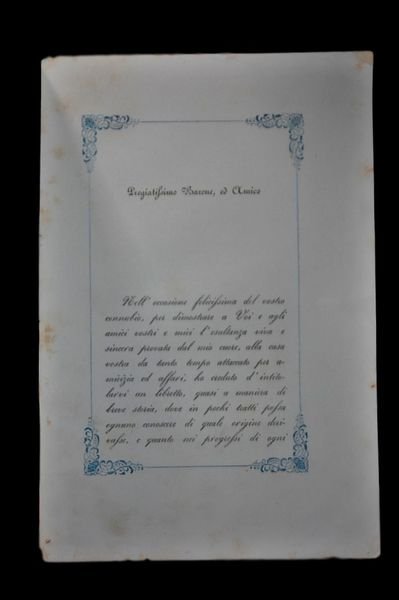 Pregiatissimo Barone, ed Amico
Nell' occasione felicissima del vostro
connubio, per dimostrare a Voi e agli
amici vostri e miei l' esultanza viva e
sincera provata dal mio cuore, alla casa
vostra da tanto tempo attaccato per a-
micizia ed affari, ho creduto d' intito-
larvi un libretto, quasi a maniera di
breve storia, dove in pochi tratti possa
ognuno conoscere di quale origine deri-
vasse, e quanto nei progressi di ogni